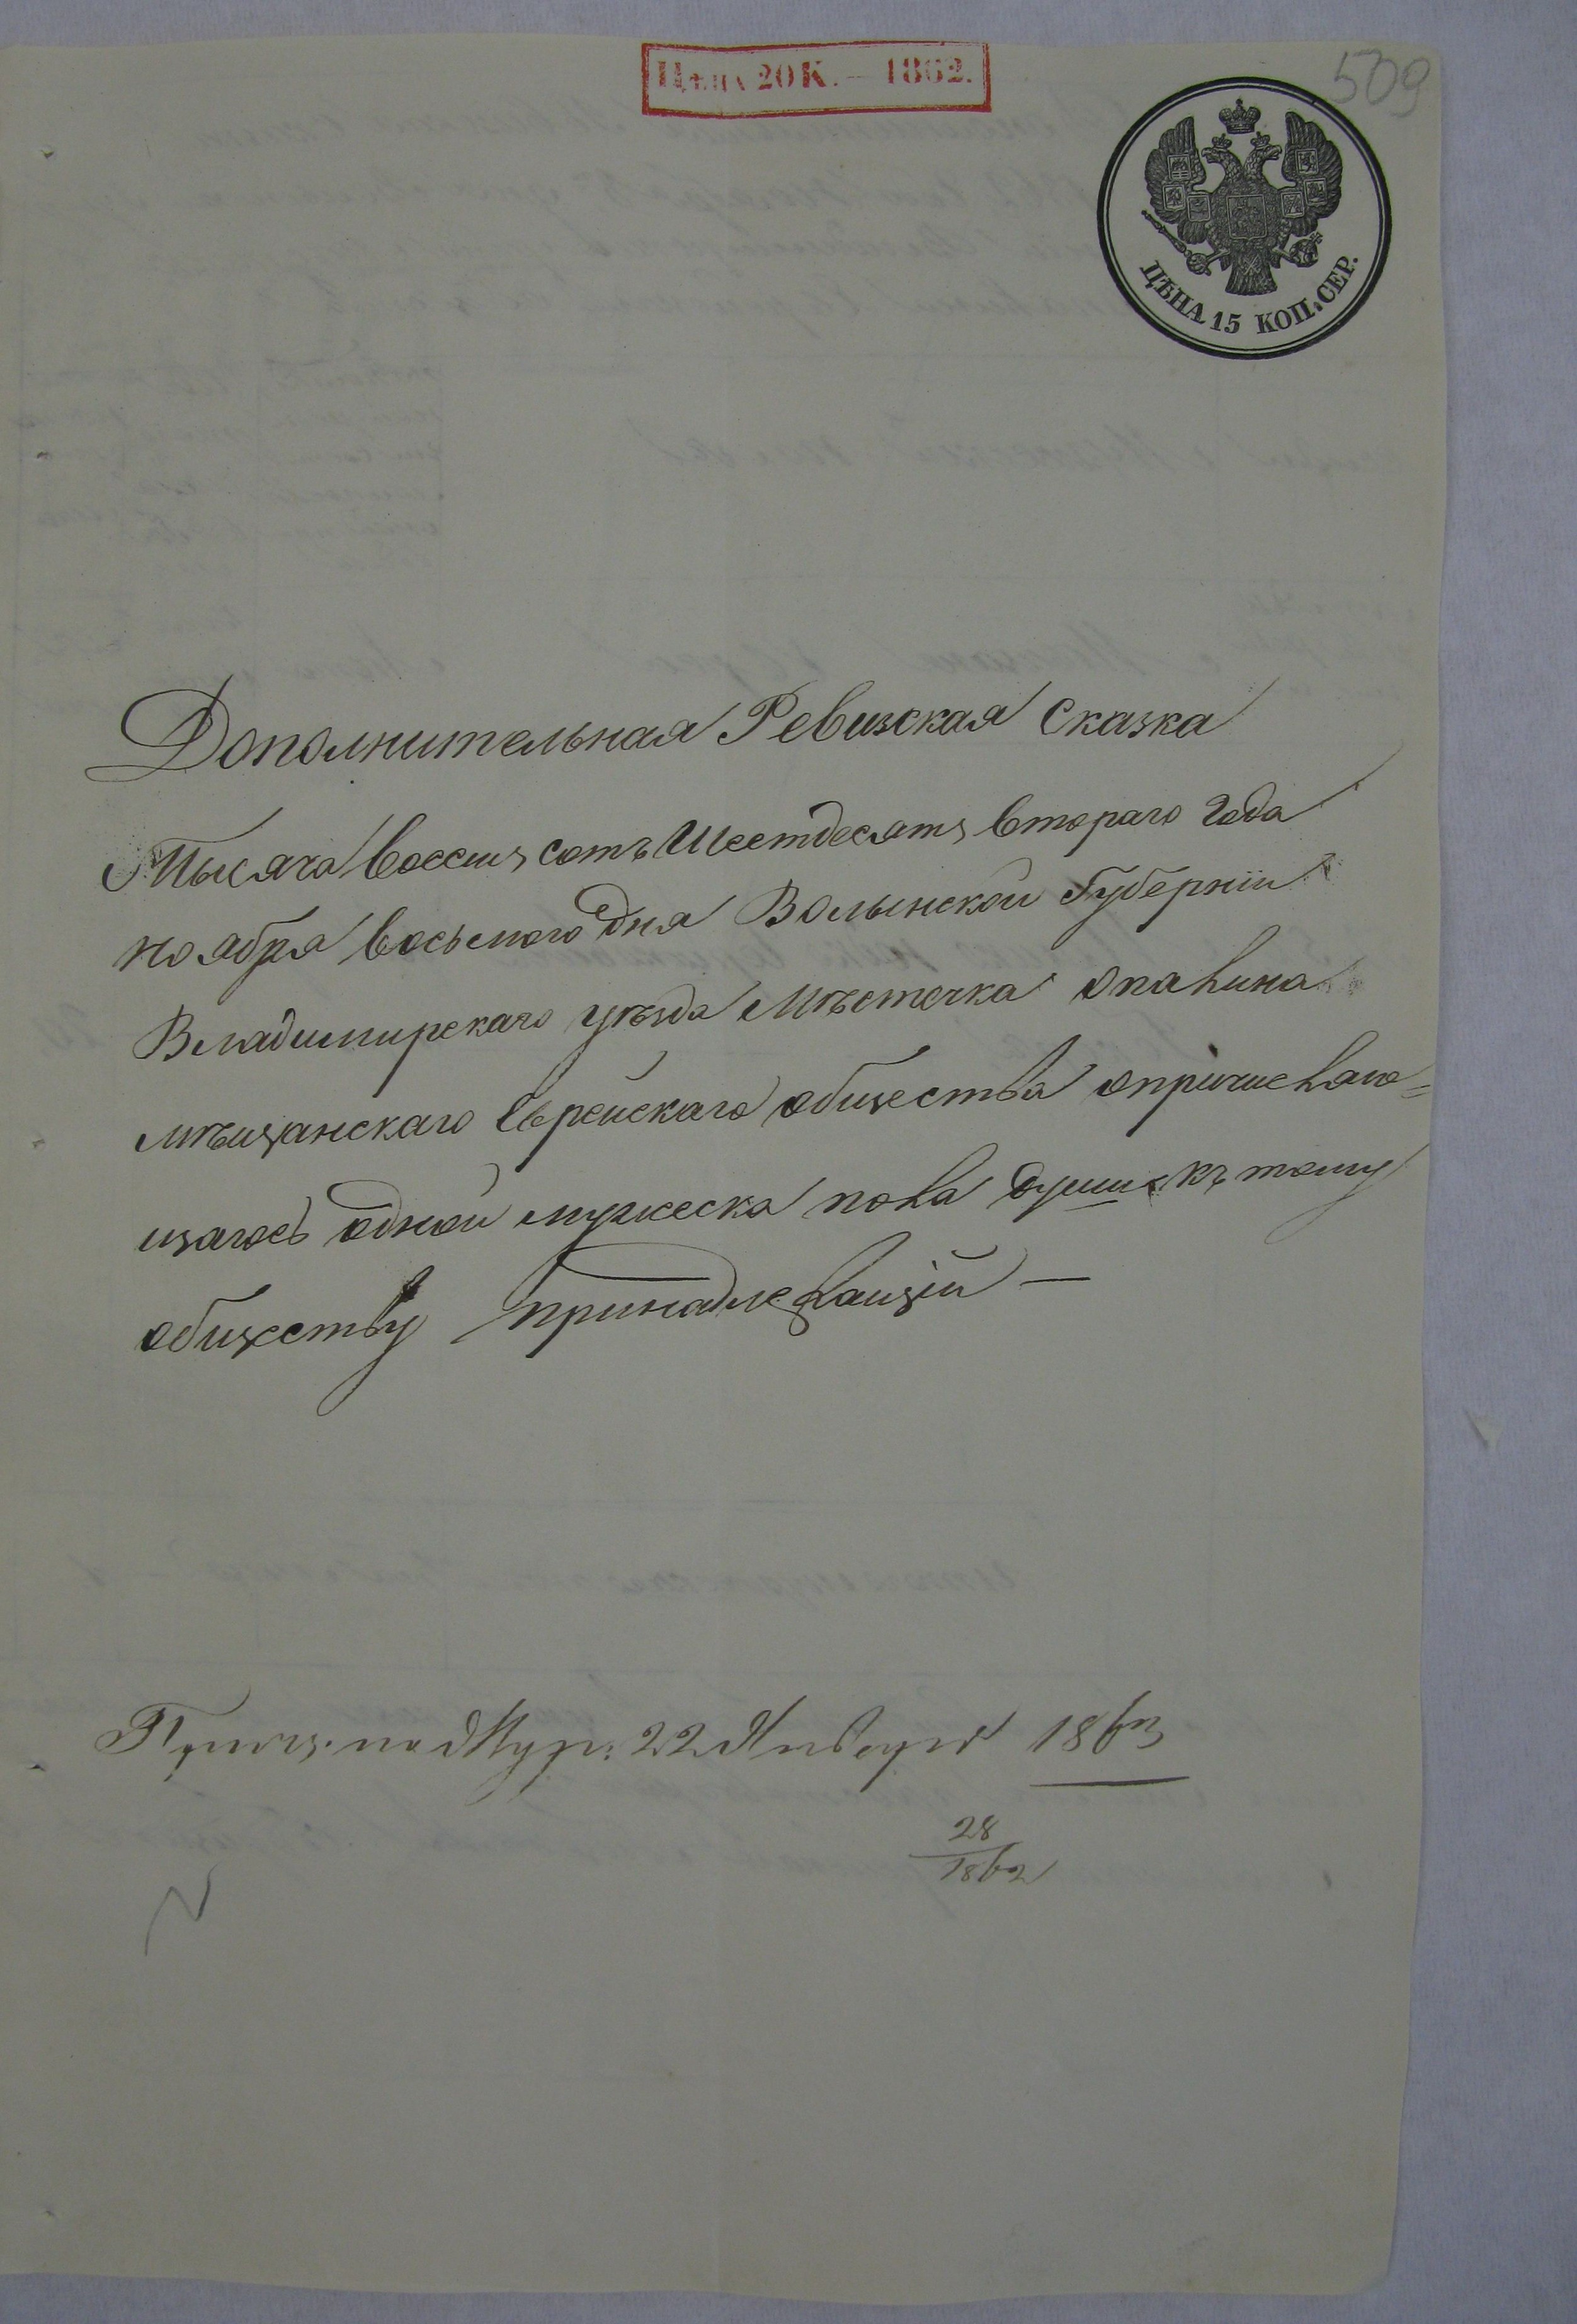 509
Цѣна 20 К. – 1862.
ЦѢНА 15 КОП. СЕР.
Дополнительная Ревизская сказка
Тысяча восемь сотъ шестдесятъ втораго года
ноября восьмого дня Волынской Губерніи
Владимирскаго уѣзда Мѣстечка Опалина
мѣщанскаго Еврейскаго общества о причислаю=
щагось одной мужеска пола души къ тому
обществу принадлежащій —
22 Января 1863
28
1862